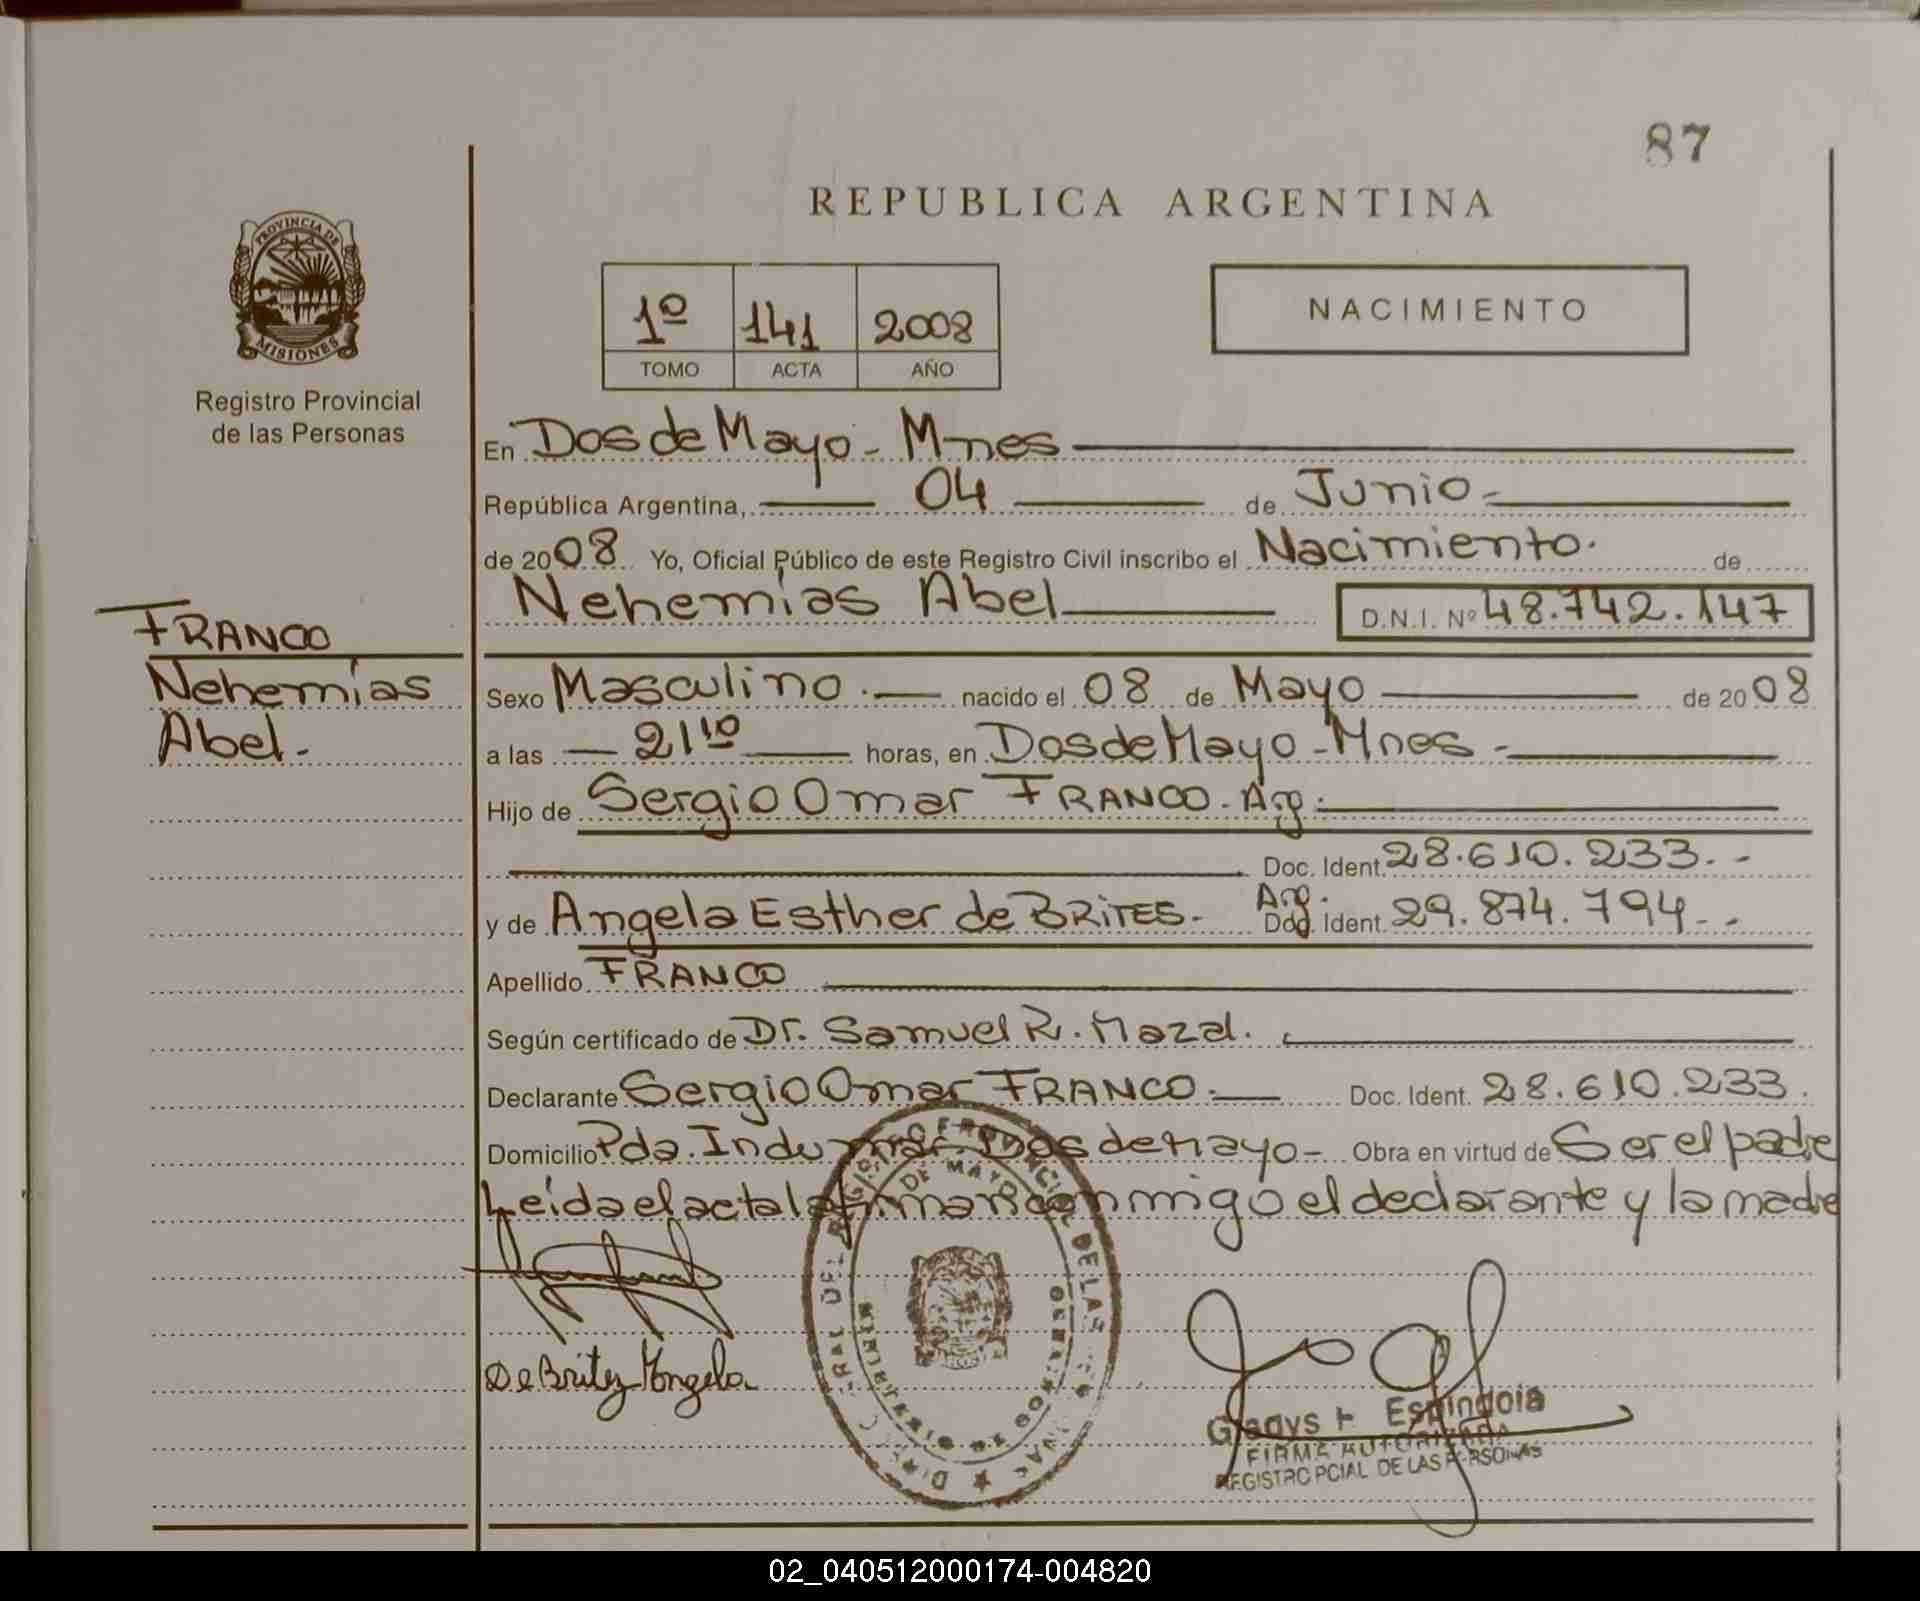 87
REPUBLICA ARGENTINA
PROVINCIA DE
MISIONES
Registro Provincial
de las Personas
1º 141 2008
TOMO ACTA AÑO
NACIMIENTO
En Dos de Mayo - Mnes
República Argentina, 04 de Junio -
de 2008 Yo, Oficial Público de este Registro Civil inscribo el Nacimiento. de
Nehemías Abel D.N.I. Nº 48.742.147
FRANCO
Nehemías
Abel.-
Sexo Masculino.- nacido el 08 de Mayo de 2008
a las 21 10 horas, en Dos de Mayo - Mnes -
Hijo de Sergio Omar FRANCO - Arg.
Doc. Ident. 28.610.233.-
y de Angela Esther de BRITES - Arg. Doc. Ident. 29.874.794.-
Apellido FRANCO
Según certificado de Dr. Samuel R. Mazal.
Declarante Sergio Omar FRANCO.- Doc. Ident. 28.610.233.
Domicilio Pda. Indumar. Dos de Mayo - Obra en virtud de Ser el padre
Leída el acta la firman conmigo el declarante y la madre
De Britez Angela
Gladys H Espindola
FIRMA AUTORIZADA
REGISTRO PCIAL DE LAS PERSONAS
02_040512000174-004820